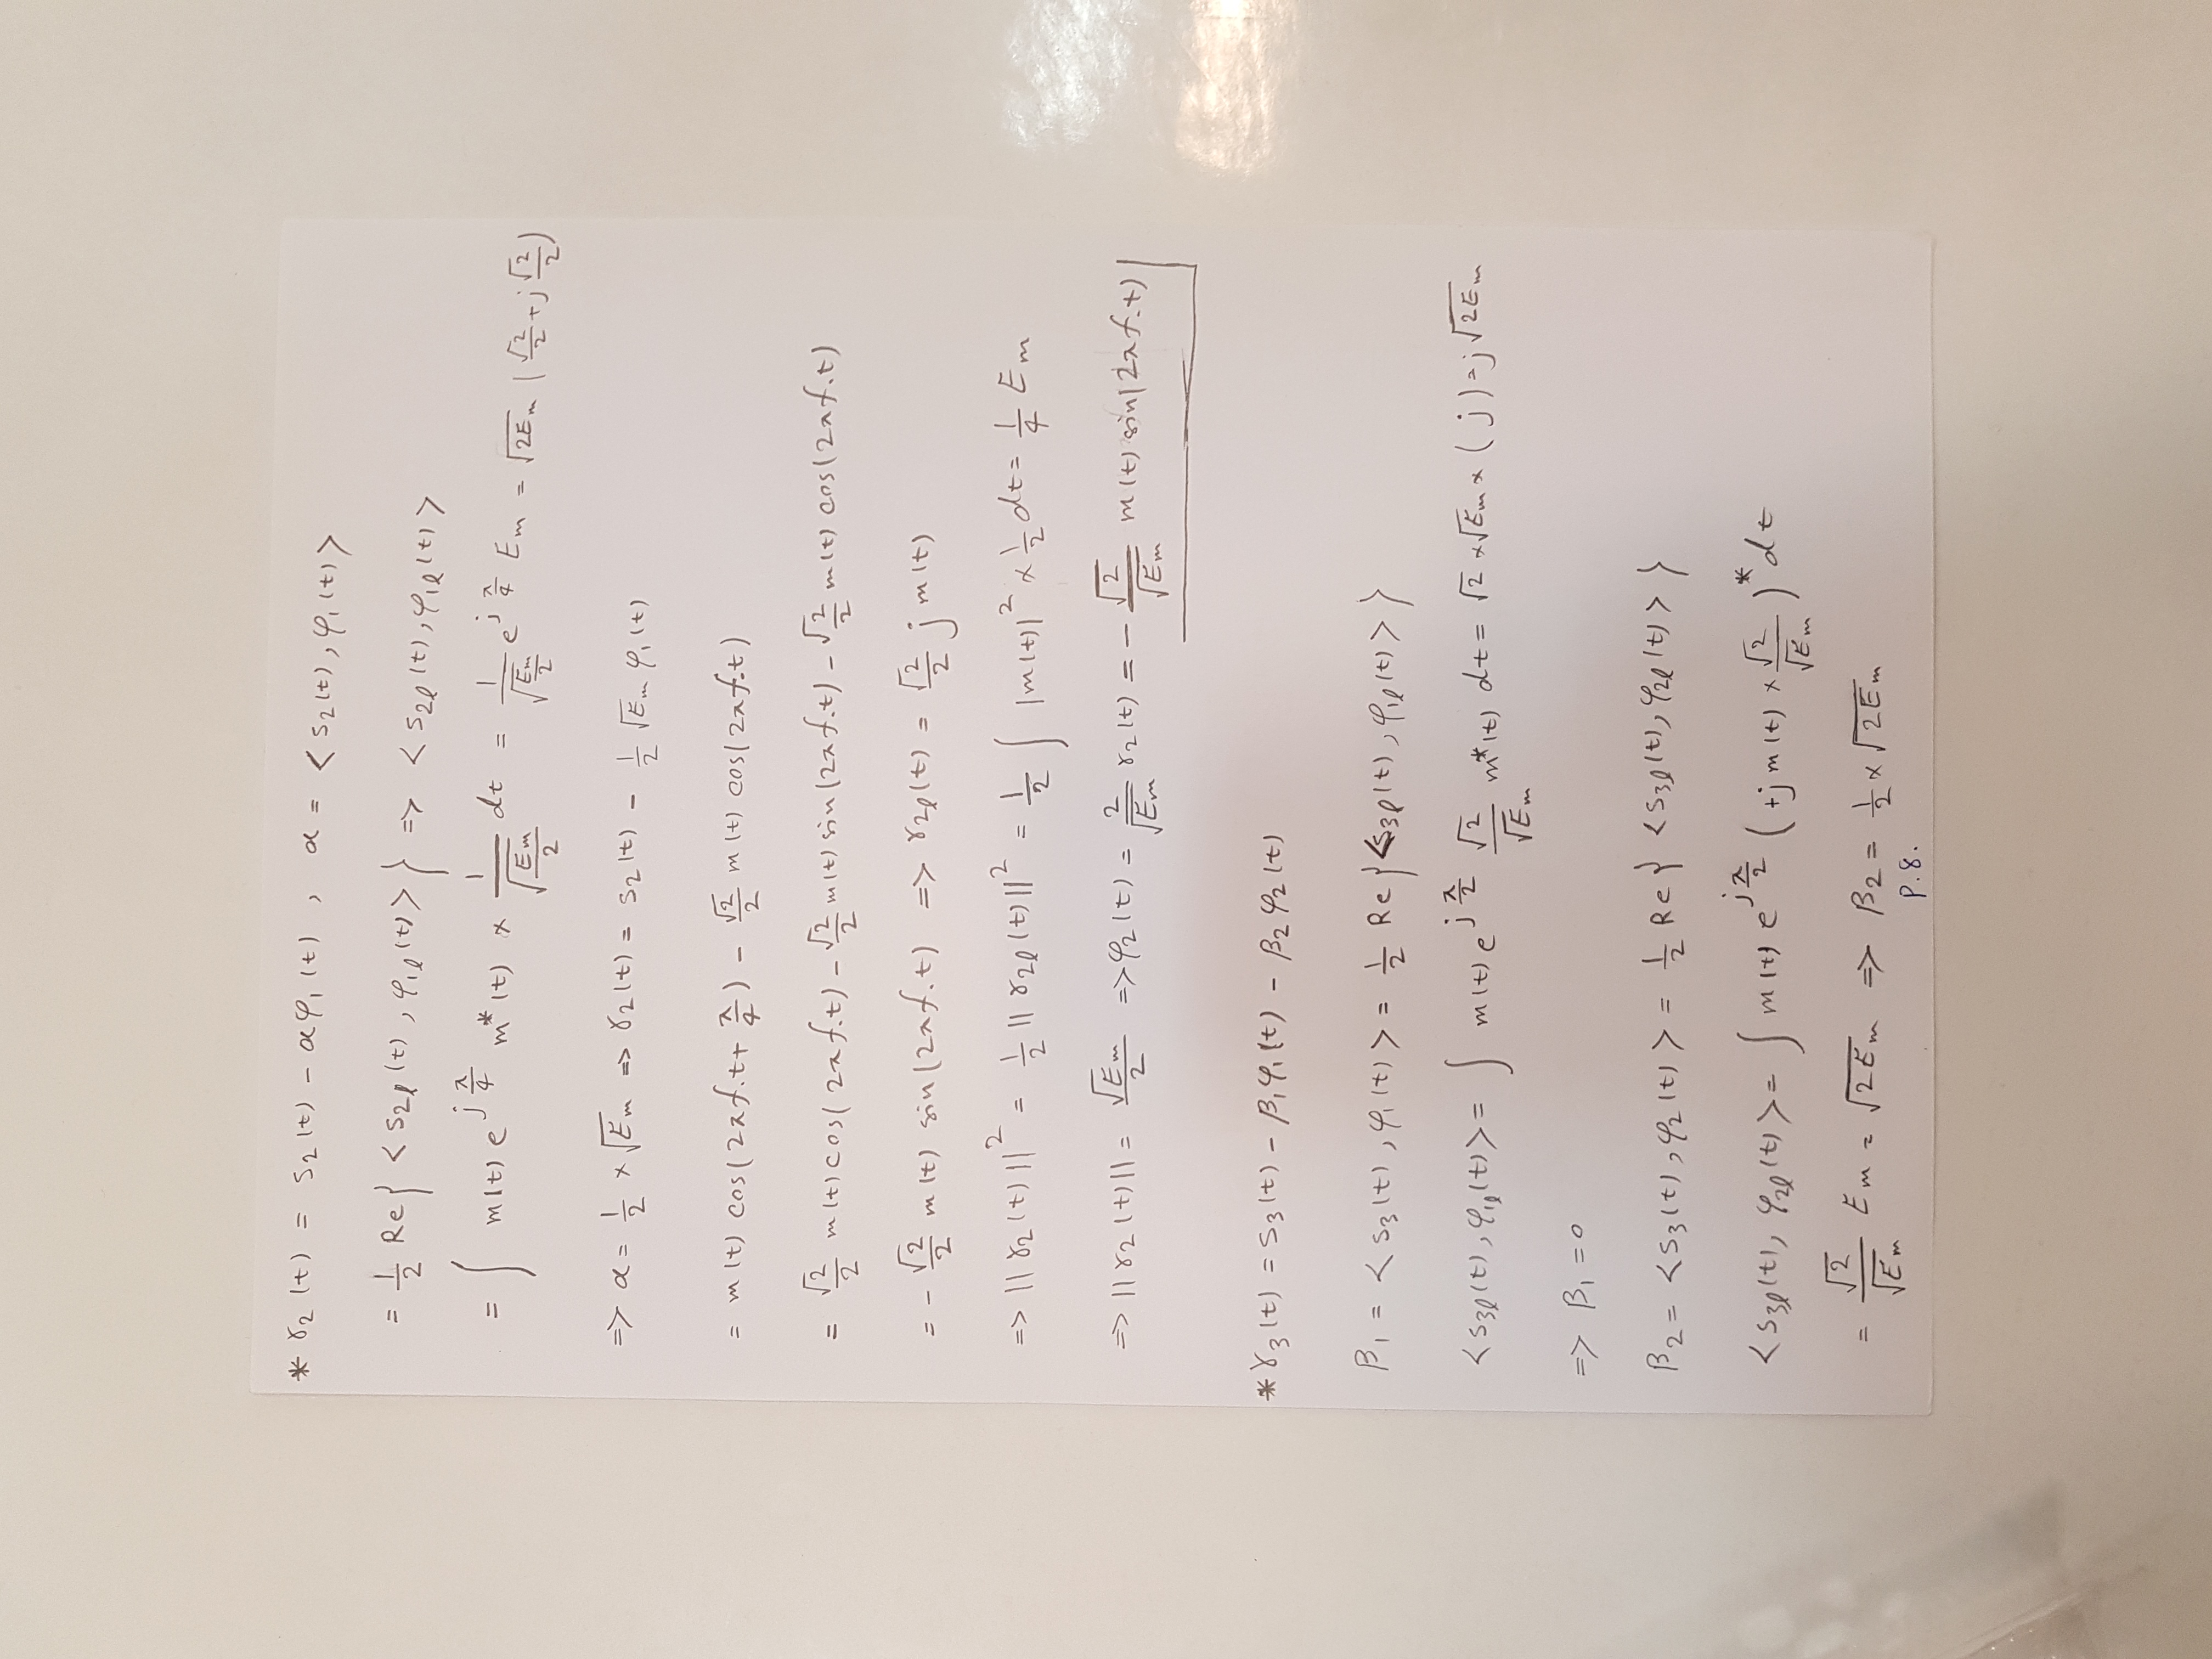 * γ₂(t) = s₂(t) - αφ₁(t) , α = <s₂(t), φ₁(t)>
= 1/2 Re{ <s₂ℓ(t), φ₁ℓ(t)> } => <s₂ℓ(t), φ₁ℓ(t)>
= ∫ m(t) e^{jπ/4} m*(t) × 1/√(Em/2) dt = 1/√(Em/2) e^{jπ/4} Em = √(2Em) (√2/2 + j√2/2)
=> α = 1/2 × √Em => γ₂(t) = s₂(t) - 1/2 √Em φ₁(t)
= m(t) cos(2πf₀t + π/4) - √2/2 m(t) cos(2πf₀t)
= √2/2 m(t) cos(2πf₀t) - √2/2 m(t) sin(2πf₀t) - √2/2 m(t) cos(2πf₀t)
= - √2/2 m(t) sin(2πf₀t) => γ₂ℓ(t) = √2/2 j m(t)
=> ||γ₂(t)||² = 1/2 ||γ₂ℓ(t)||² = 1/2 ∫ |m(t)|² × 1/2 dt = 1/4 Em
=> ||γ₂(t)|| = √Em/2 => φ₂(t) = 2/√Em γ₂(t) = - √2/√Em m(t) sin(2πf₀t)
* γ₃(t) = s₃(t) - β₁φ₁(t) - β₂φ₂(t)
β₁ = <s₃(t), φ₁(t)> = 1/2 Re{<s₃ℓ(t), φ₁ℓ(t)>}
<s₃ℓ(t), φ₁ℓ(t)> = ∫ m(t) e^{jπ/2} √2/√Em m*(t) dt = √2 × √Em × (j) = j√(2Em)
=> β₁ = 0
β₂ = <s₃(t), φ₂(t)> = 1/2 Re{ <s₃ℓ(t), φ₂ℓ(t)> }
<s₃ℓ(t), φ₂ℓ(t)> = ∫ m(t) e^{jπ/2} (+j m(t) × √2/√Em)* dt
= √2/√Em Em = √(2Em) => β₂ = 1/2 × √(2Em)
P.8.